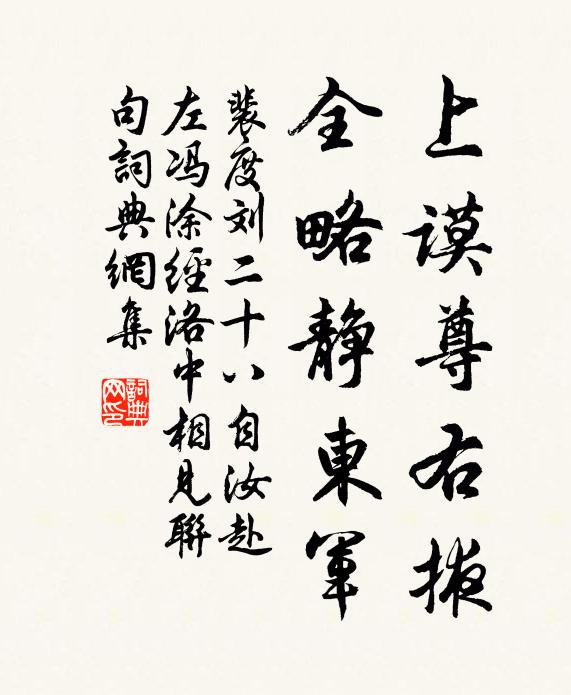 上謨尊右掖
全略静東軍
裴度刘二十八自汝赴
左冯涂經洛中相見聯
句詞典網集
詞典网印